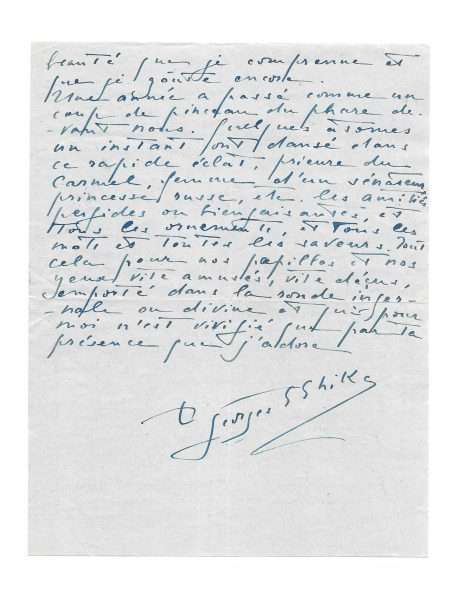 beauté que je comprenne et
que je goûte encore.
Une année a passé comme un
coup de pinceau du phare de-
-vant nous. Quelques atomes
un instant ont dansé dans
ce rapide éclat, prieure du
Carmel, femme d'un sénateur,
princesse russe, etc. les amitiés
perfides ou bienfaisantes, et
tous les ornements, et tous les
mots et toutes les saveurs. Tout
cela pour nos papilles et nos
yeux vite amusés, vite déçus,
emporté dans la ronde infer-
-nale ou divine et qui pour
moi n'est vivifié que par ta
présence que j'adore
Georges Ghika